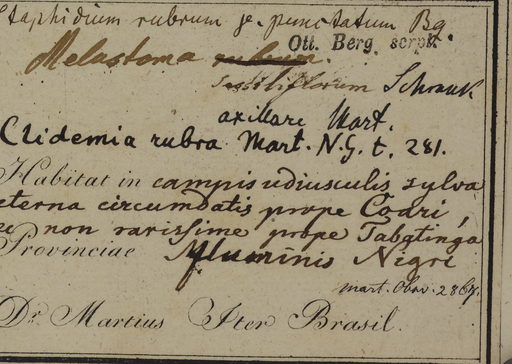 Staphidium rubrum je. punctatum Bg.
Ott. Berg. scrps.
Melastoma rubrum.
sessiliflorum Schrank
axillare Mart.
Clidemia rubra Mart. N.G. t. 281.
Habitat in campis udiusculis sylva
eterna circumdatis prope Coari,
non rarissime prope Tabatinga
Provinciae fluminis Nigri
Mart. Obsv. 2867.
Dr. Martius Iter Brasil.